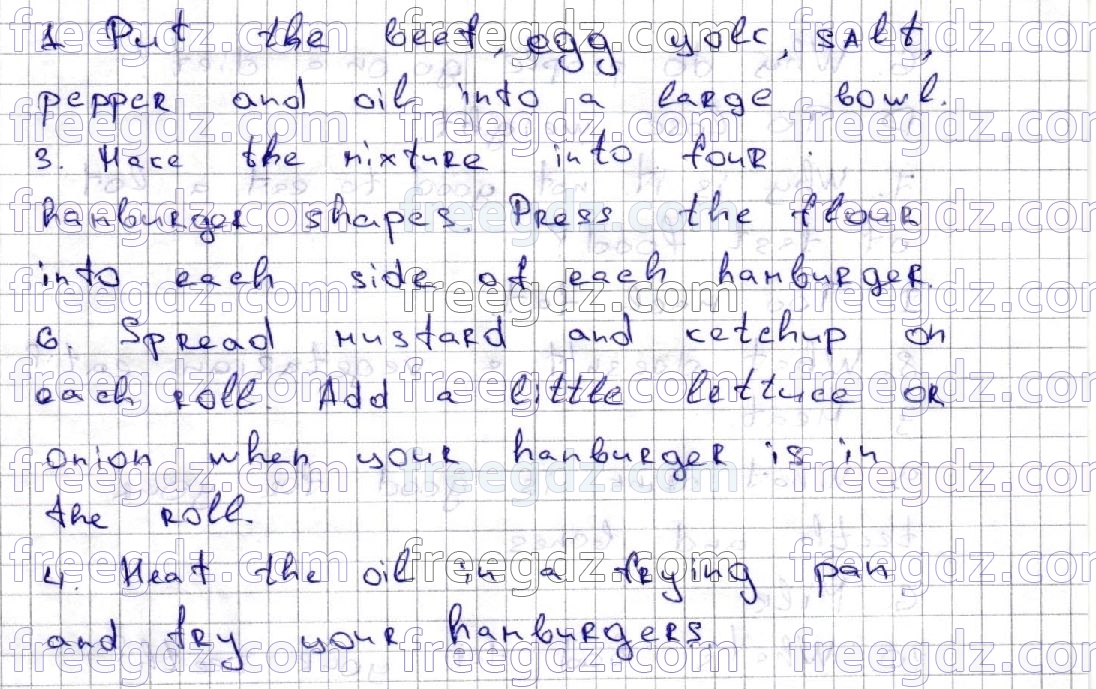 1 Put the beef, egg yolc, salt,
pepper and oil into a large bowl.
3. Mace the mixture into four
hamburger shapes. Press the flour
into each side of each hamburger.
6. Spread mustard and cetchup on
each roll. Add a little lettuce or
onion when your hamburger is in
the roll.
4. Heat the oil in a frying pan
and fry your hamburgers.
freegdz.com